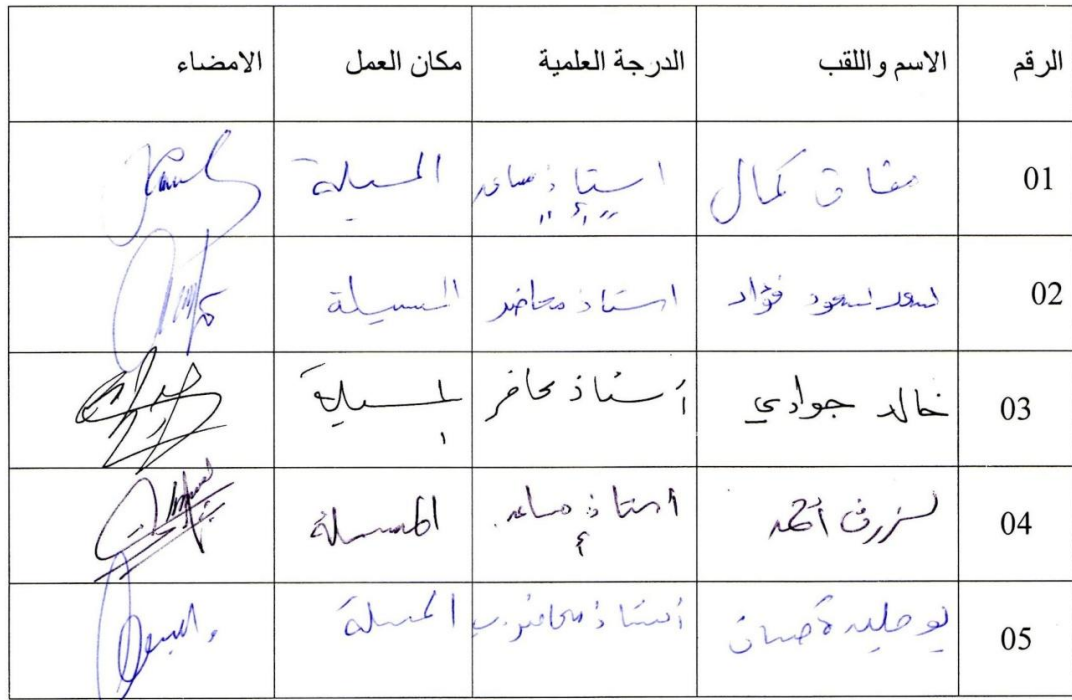 الرقم الاسم واللقب الدرجة العلمية مكان العمل الامضاء
01 كمال استاذ مساعد "أ" المسيلة
02 سعد سعود فؤاد استاذ محاضر المسيلة
03 خالد جوادي أستاذ محاضر المسيلة
04 لزرق أحمد أستاذ مساعد أ المسيلة
05 أستاذ محاضر ب المسيلة